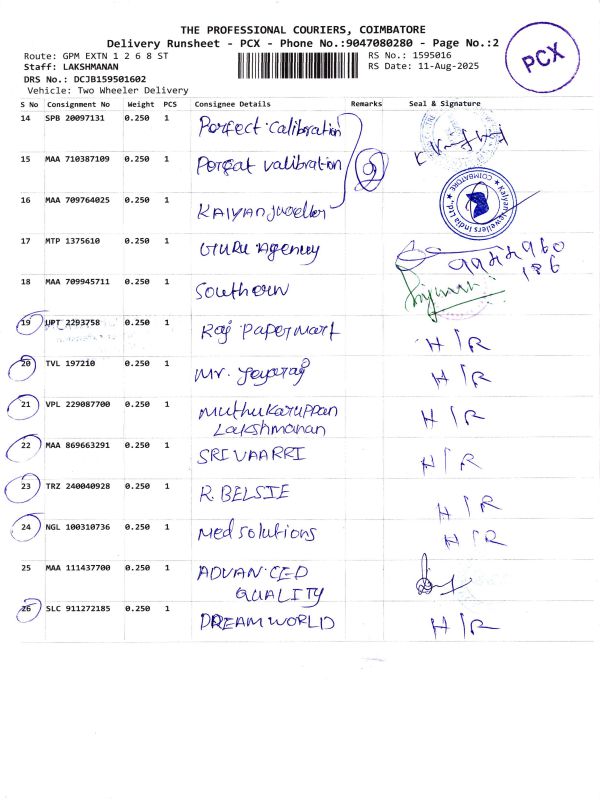 THE PROFESSIONAL COURIERS, COIMBATORE
Delivery Runsheet - PCX - Phone No.:9047080280 - Page No.:2
PCX
Route: GPM EXTN 1 2 6 8 ST
RS No.: 1595016
Staff: LAKSHMANAN
RS Date: 11-Aug-2025
DRS No.: DCJB159501602
Vehicle: Two Wheeler Delivery
S No Consignment No Weight PCS Consignee Details Remarks Seal & Signature
14 SPB 20097131 0.250 1 Perfect Calibration
15 MAA 710387109 0.250 1 Perfect Calibration
16 MAA 709764025 0.250 1 KAlYAN Jweller
Kalyan Jewellers India Ltd. COIMBATORE
17 MTP 1375610 0.250 1 GURU Agency
186
18 MAA 709945711 0.250 1 Southern
19 UPT 2293758 0.250 1 Raj Papermart H/R
20 TVL 197210 0.250 1 Mr. Jeyaraj H/R
21 VPL 229087700 0.250 1 Muthukaruppan H/R
Lakshmanan
22 MAA 869663291 0.250 1 SRIVAARRI H/R
23 TRZ 240040928 0.250 1 R. BELSIE H/R
24 NGL 100310736 0.250 1 Med solutions H/R
25 MAA 111437700 0.250 1 ADVANCED
QUALITY
26 SLC 911272185 0.250 1 DREAMWORLD H/R